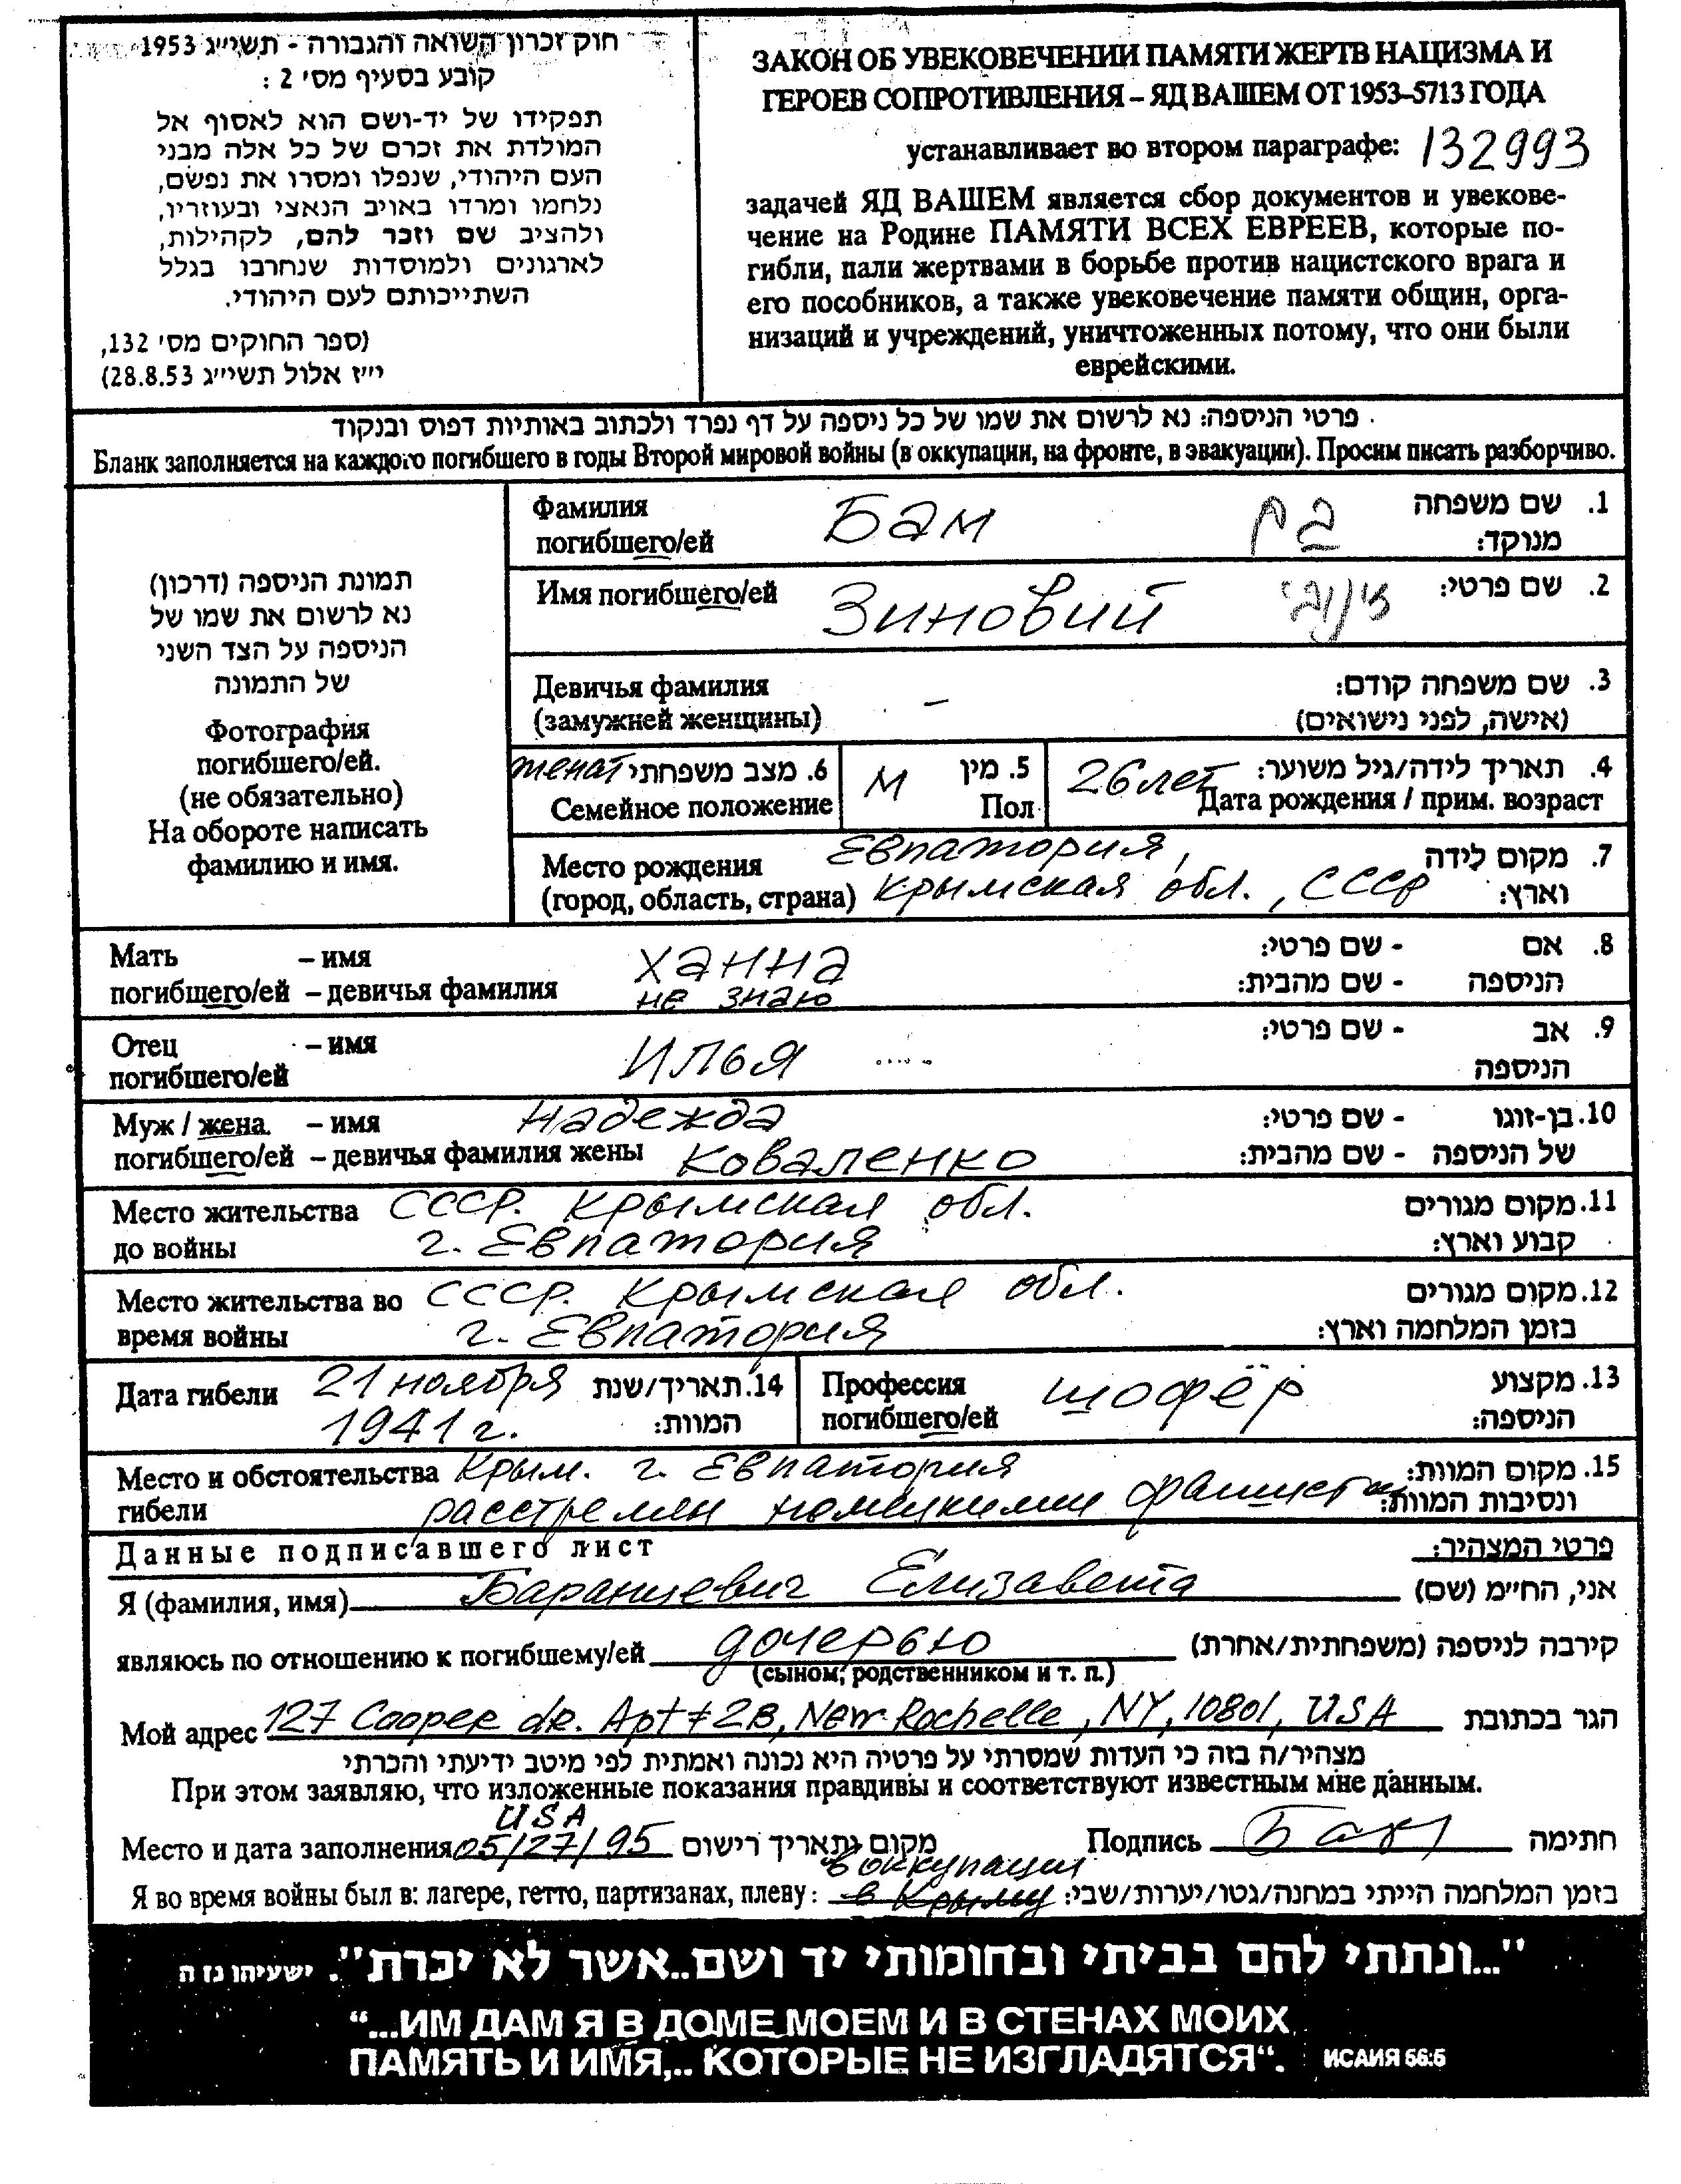 חוק זכרון השואה והגבורה - תשי״ג 1953
קובע בסעיף מס׳ 2 :
תפקידו של יד-ושם הוא לאסוף אל
המולדת את זכרם של כל אלה מבני
העם היהודי, שנפלו ומסרו את נפשם,
נלחמו ומרדו באויב הנאצי ובעוזריו,
ולהציב שם וזכר להם, לקהילות,
לארגונים ולמוסדות שנחרבו בגלל
השתייכותם לעם היהודי.
(ספר החוקים מס׳ 132,
י״ז אלול תשי״ג 28.8.53)
ЗАКОН ОБ УВЕКОВЕЧЕНИИ ПАМЯТИ ЖЕРТВ НАЦИЗМА И
ГЕРОЕВ СОПРОТИВЛЕНИЯ – ЯД ВАШЕМ ОТ 1953–5713 ГОДА
устанавливает во втором параграфе: 132993
задачей ЯД ВАШЕМ является сбор документов и увекове-
чение на Родине ПАМЯТИ ВСЕХ ЕВРЕЕВ, которые по-
гибли, пали жертвами в борьбе против нацистского врага и
его пособников, а также увековечение памяти общин, орга-
низаций и учреждений, уничтоженных потому, что они были
еврейскими.
פרטי הניספה: נא לרשום את שמו של כל ניספה על דף נפרד ולכתוב באותיות דפוס ובנקוד .
Бланк заполняется на каждого погибшего в годы Второй мировой войны (в оккупации, на фронте, в эвакуации). Просим писать разборчиво.
תמונת הניספה (דרכון)
נא לרשום את שמו של
הניספה על הצד השני
של התמונה
Фотография
погибшего/ей.
(не обязательно)
На обороте написать
фамилию и имя.
Фамилия Бам בם 1. שם משפחה
погибшего/ей מנוקד:
Имя погибшего/ей Зиновий זינובי 2. שם פרטי:
Девичья фамилия – 3. שם משפחה קודם:
(замужней женщины) (אישה, לפני נישואים)
женат 6. מצב משפחתי М 5. מין 26 лет 4. תאריך לידה/גיל משוער:
Семейное положение Пол Дата рождения / прим. возраст
Место рождения Евпатория, 7. מקום לידה
(город, область, страна) Крымская обл., СССР וארץ:
Мать – имя Ханна 8. אם - שם פרטי:
погибшего/ей – девичья фамилия не знаю הניספה - שם מהבית:
Отец – имя Илья 9. אב - שם פרטי:
погибшего/ей הניספה
Муж / жена – имя Надежда 10. בן-זוגו - שם פרטי:
погибшего/ей – девичья фамилия жены Коваленко של הניספה - שם מהבית:
Место жительства СССР. Крымская обл. 11. מקום מגורים
до войны г. Евпатория קבוע וארץ:
Место жительства во СССР. Крымская обл. 12. מקום מגורים
время войны г. Евпатория בזמן המלחמה וארץ:
Дата гибели 21 ноября 14. תאריך/שנת Профессия шофёр 13. מקצוע
1941 г. המוות: погибшего/ей הניספה:
Место и обстоятельства Крым. г. Евпатория 15. מקום המוות:
гибели расстрелян немецкими ונסיבות המוות:
Данные подписавшего лист פרטי המצהיר:
Я (фамилия, имя) Баранцевич Елизавета אני, הח״מ (שם)
являюсь по отношению к погибшему/ей дочерью קירבה לניספה (משפחתית/אחרת)
(сыном, родственником и т. п.)
Мой адрес 127 Cooper dr. Apt # 2B, New Rochelle, NY, 10801, USA הגר בכתובת
מצהיר/ה בזה כי העדות שמסרתי על פרטיה היא נכונה ואמתית לפי מיטב ידיעתי והכרתי
При этом заявляю, что изложенные показания правдивы и соответствуют известным мне данным.
USA
Место и дата заполнения 05/27/95 מקום ותאריך רישום Подпись חתימה
в оккупации
Я во время войны был в: лагере, гетто, партизанах, плену: в Крыму בזמן המלחמה הייתי במחנה/גטו/יערות/שבי:
"...ונתתי להם בביתי ובחומותי יד ושם..אשר לא יכרת". ישעיהו נז ה
“...ИМ ДАМ Я В ДОМЕ МОЕМ И В СТЕНАХ МОИХ
ПАМЯТЬ И ИМЯ,.. КОТОРЫЕ НЕ ИЗГЛАДЯТСЯ“. ИСАИЯ 56:5